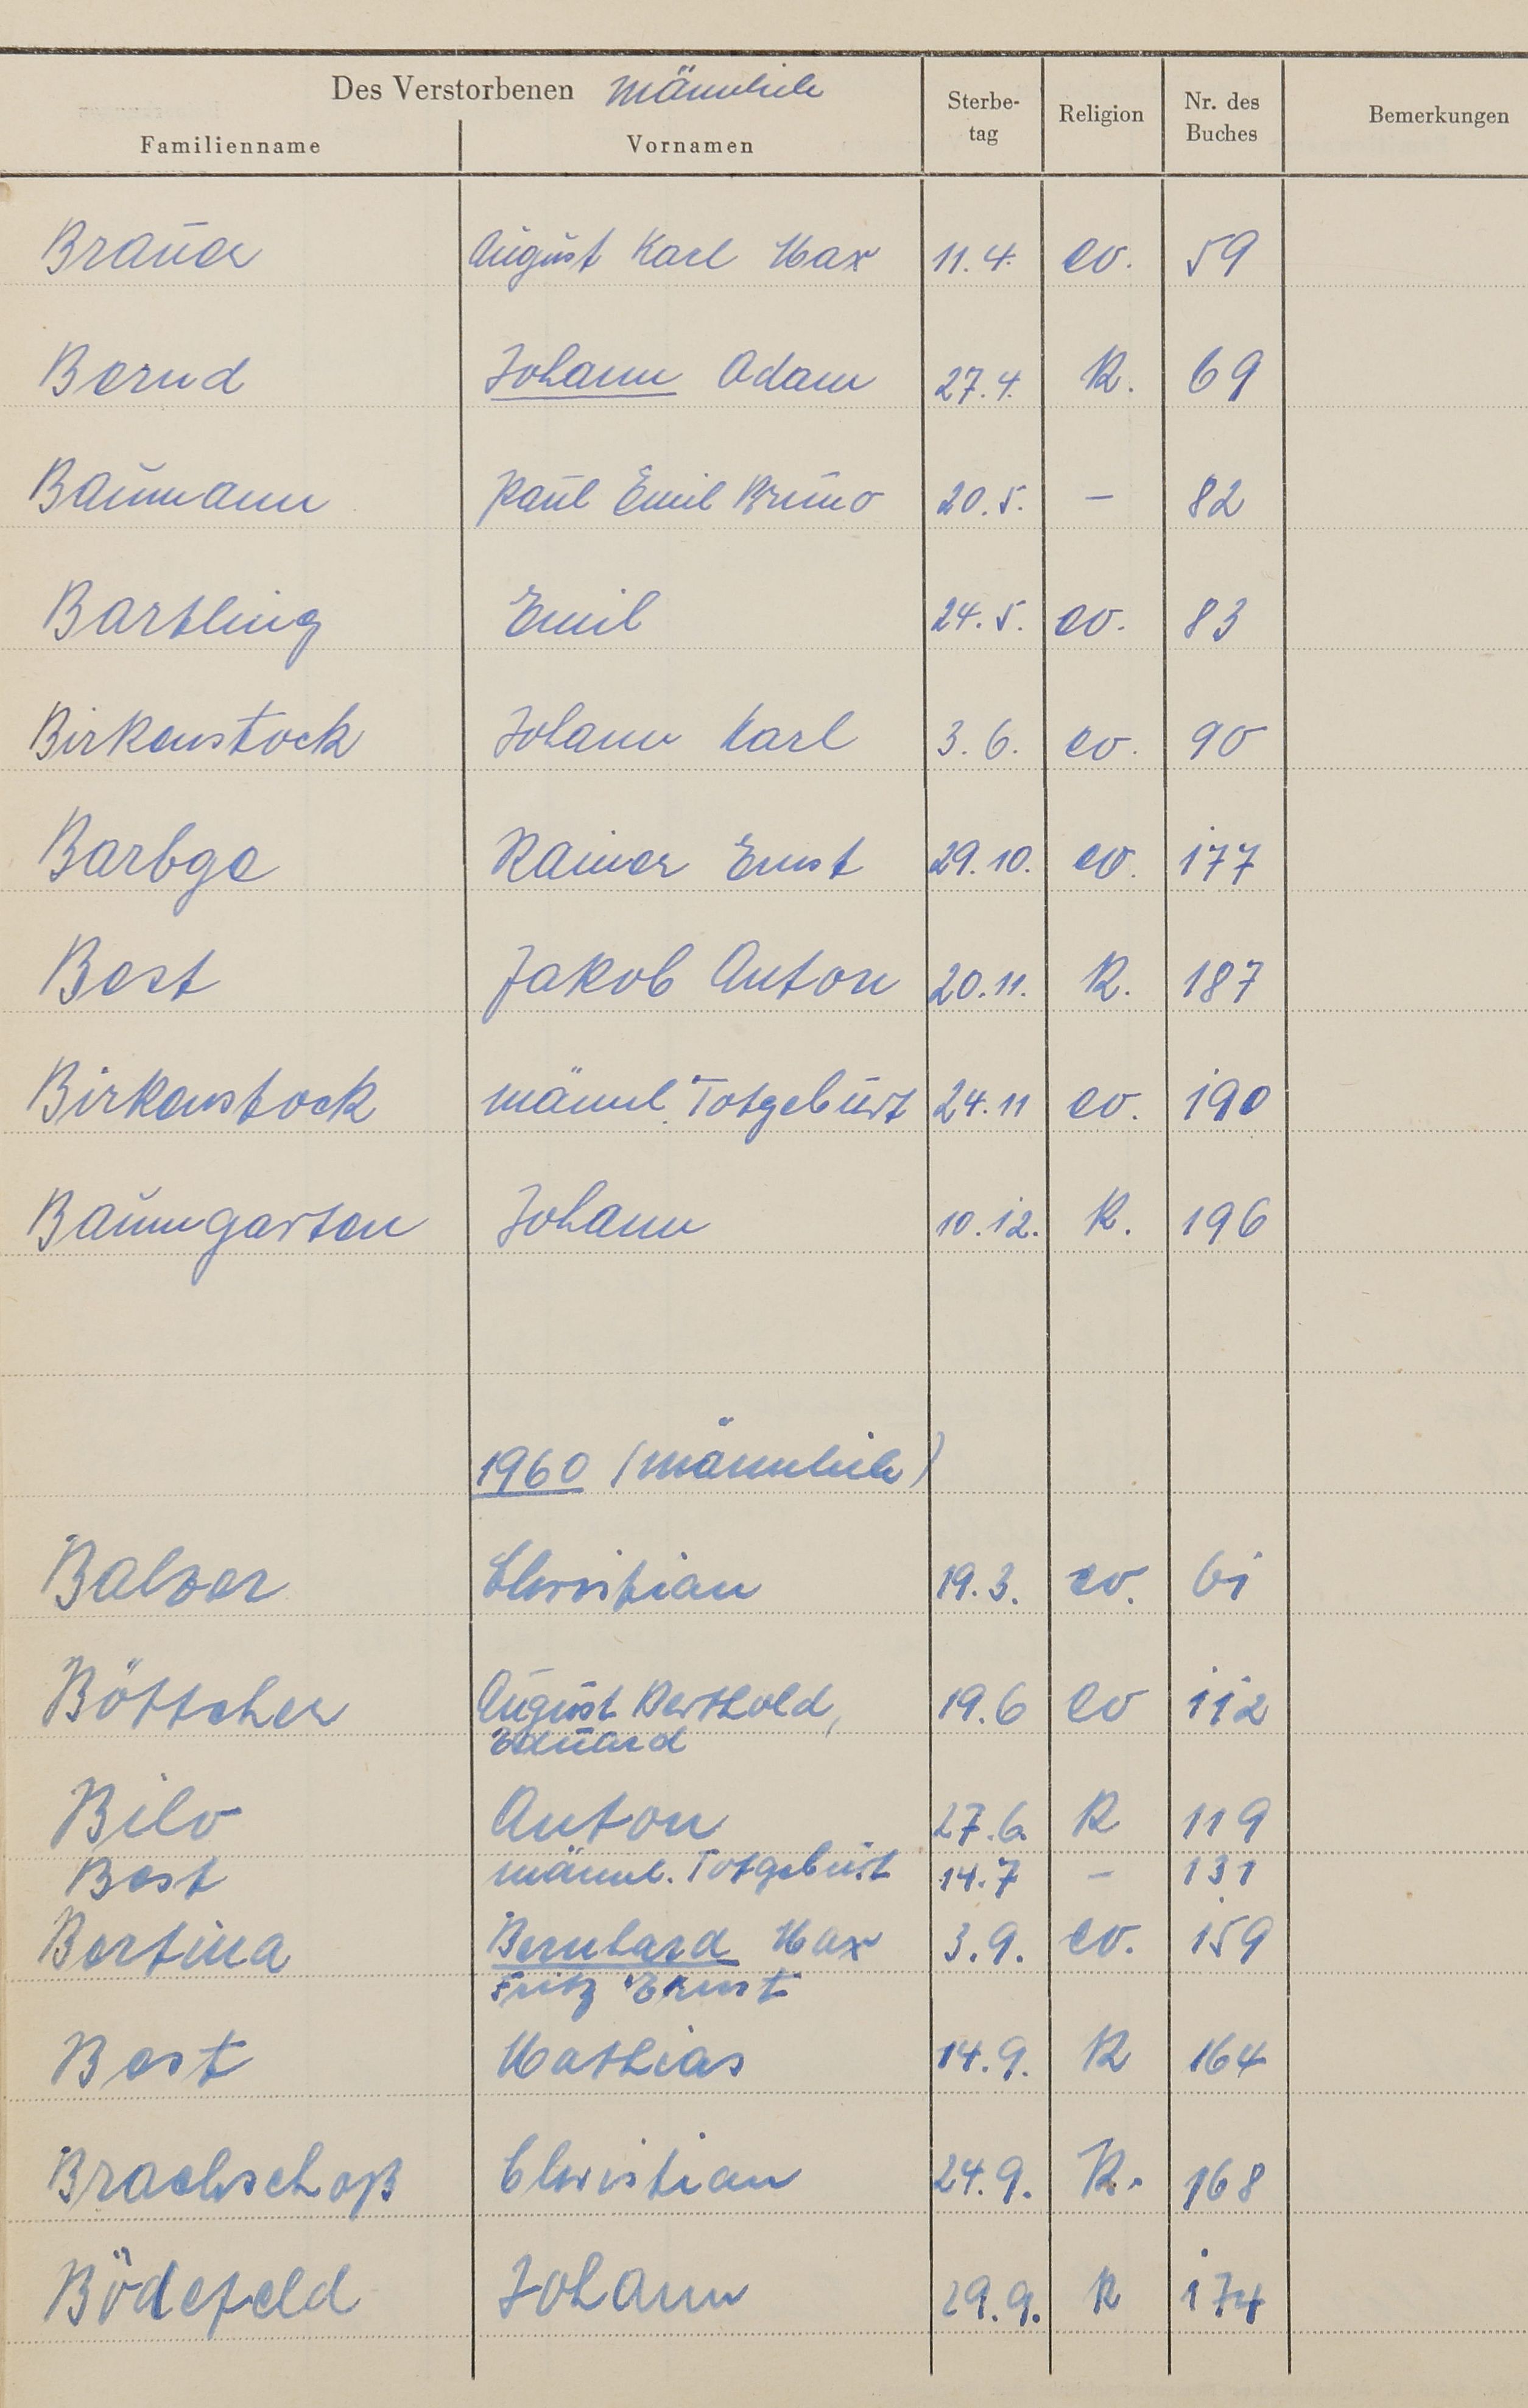 Des Verstorbenen männlich
Familienname Vornamen Sterbe-tag Religion Nr. des Buches Bemerkungen
Brauer August Karl Max 11.4. ev. 59
Bernd Johann Adam 27.4. K. 69
Baumann Paul Emil Bruno 20.5. – 82
Bartling Emil 24.5. ev. 83
Birkenstock Johann Karl 3.6. ev. 90
Barbge Rainer Ernst 29.10. ev. 177
Best Jakob Anton 20.11. K. 187
Birkenstock männl. Totgeburt 24.11 ev. 190
Baumgarten Johann 10.12. K. 196
1960 (männlich)
Balzer Christian 19.3. ev. 61
Böttcher August Berthold, 19.6 ev 112
Eduard
Bilo Anton 27.6. K 119
Best männl. Totgeburt 14.7 – 131
Bertina Bernhard Max 3.9. ev. 159
Fritz Ernst
Best Mathias 14.9. K 164
Brachschoß Christian 24.9. K. 168
Bödefeld Johann 29.9. K 174